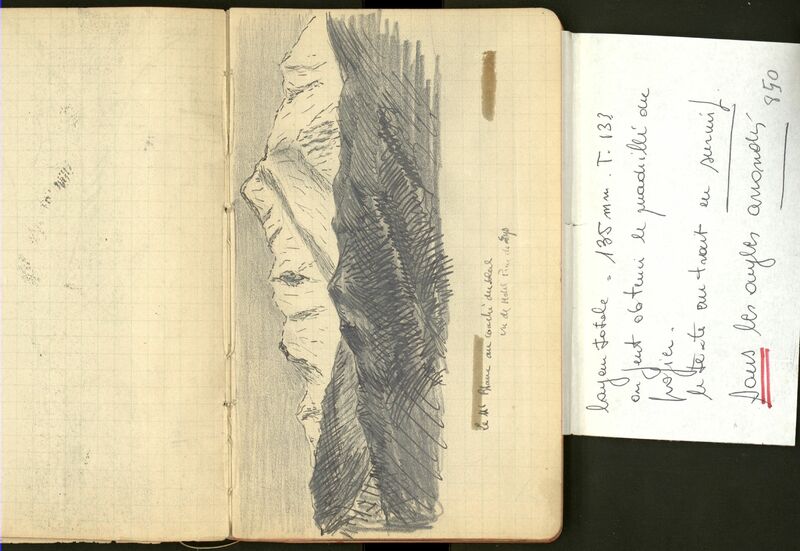 Le Mt Blanc au couché du soleil
vu de Hotel
layout totale = 135 mm. T. 133
on peut obtenir le quadrillé du
papier.
le texte au trait en surimp.
Sans les angles arrondis
850